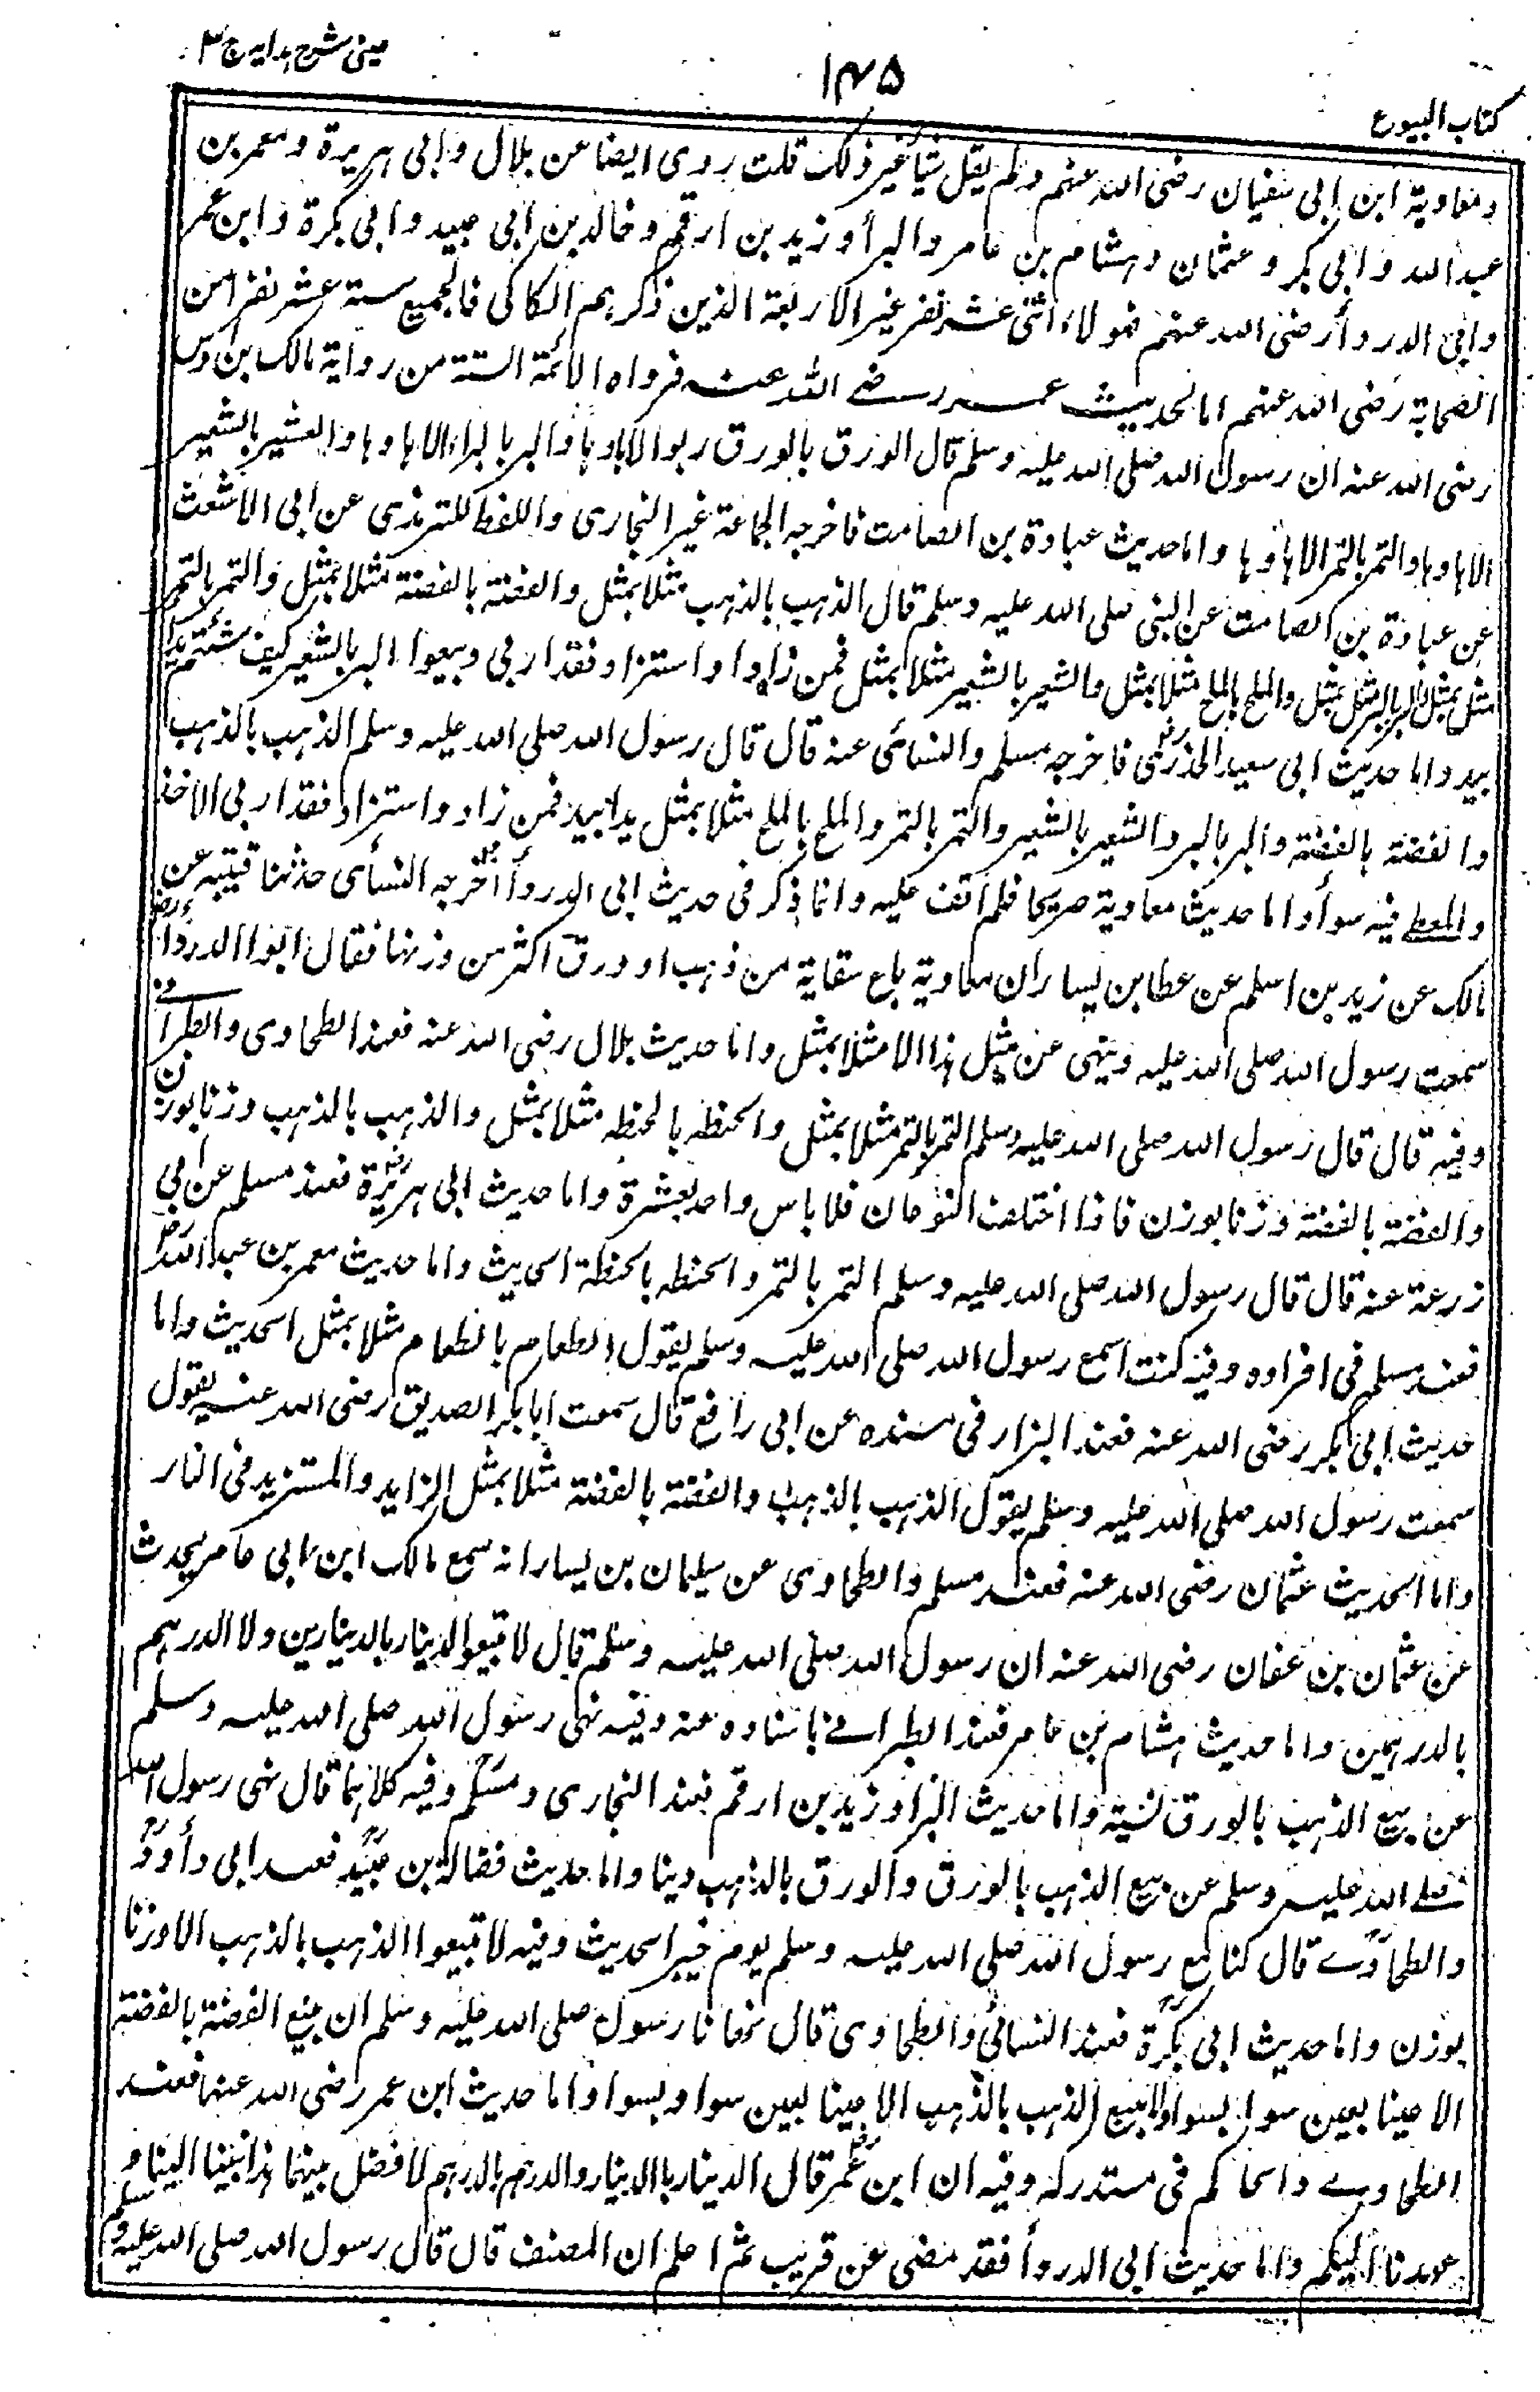 عینی شرح ہدایہ ج ۳
۱۴۵
کتاب البیوع
ومعاوية ابن ابى سفيان رضى الله عنهم ولم يقل شيأ غير ذلك قلت روى ايضا عن بلال وابى هريرة ومعمر بن
عبد الله وابى بكر وعثمان وهشام بن عامر والبرأ وزيد بن ارقم وخالد بن ابى عبيد وابى بكرة وابن عمر
وابى الدردأ رضى الله عنهم فهولاء اثنى عشر نفر غير الاربعة الذين ذكرهم الكاكى فالجميع ستة عشر نفرا من
الصحابة رضى الله عنهم اما لحديث عمر رضى الله عنه فرواه الائمة الستة من رواية مالك بن اوس
رضى الله عنه ان رسول الله صلى الله عليه وسلم قال الورق بالورق ربوا الاها وها والبر بالبر الاها وها والشعير بالشعير
الاها وها والتمر بالتمر الاها وها واما حديث عبادة بن الصامت فاخرجه الجماعة غير البخارى واللفظ للترمذى عن ابى الاشعث
عن عبادة بن الصامت عن النبى صلى الله عليه وسلم قال الذهب بالذهب مثلا بمثل والفضة بالفضة مثلا بمثل والتمر بالتمر
مثل بمثل والبر بالبر مثل بمثل والملح بالملح مثلا بمثل والشعير بالشعير مثلا بمثل فمن زاد او استزاد فقد اربى وبيعوا البر بالشعير كيف شئتم يدا
بيد واما حديث ابى سعيد الخدرى فاخرجه مسلم والنسائى عنه قال قال رسول الله صلى الله عليه وسلم الذهب بالذهب
والفضة بالفضة والبر بالبر والشعير بالشعير والتمر بالتمر والملح بالملح مثلا بمثل يدا بيد فمن زاد واستزاد فقد اربى الاخذ
والمعطى فيه سوأ واما حديث معاوية صريحا فلم اقف عليه وانما ذكر فى حديث ابى الدردأ اخرجه النسأى حدثنا قتيبه عن
مالك عن زيد بن اسلم عن عطا بن يسار ان معاوية باع سقاية من ذهب او ورق اكثر من وزنها فقال ابوا الدردأ
سمعت رسول الله صلى الله عليه وينهى عن مثل هذا الا مثلا بمثل واما حديث بلال رضى الله عنه فعند الطحاوى والطبرانى
وفيه قال قال رسول الله صلى الله عليه وسلم التمر بالتمر مثلا بمثل والحنطه بالحنطه مثلا بمثل والذهب بالذهب وزنا بوزن
والفضة بالفضة وزنا بوزن فاذا اختلف النوعان فلا باس واحد بعشرة واما حديث ابى هريرة فعند مسلم عن ابى
زرعة عنه قال قال رسول الله صلى الله عليه وسلم التمر بالتمر والحنطه بالحنطة الحديث واما حديث معمر بن عبد الله
فعند مسلم فى افراده وفيه كنت اسمع رسول الله صلى الله عليه وسلم يقول الطعام بالطعام مثلا بمثل الحديث واما
حديث ابى بكر رضى الله عنه فعند البزار فى مسنده عن ابى رافع قال سمعت ابا بكر الصديق رضى الله عنه يقول
سمعت رسول الله صلى الله عليه وسلم يقول الذهب بالذهب والفضة بالفضة مثلا بمثل الزايد والمستزيد فى النار
واما الحديث عثمان رضى الله عنه فعند مسلم والطحاوى عن سليمان بن يسار انه سمع مالك ابن ابى عامر يحدث
عن عثمان بن عفان رضى الله عنه ان رسول الله صلى الله عليه وسلم قال لا تبيعوا الدينار بالدينارين ولا الدرهم
بالدرهمين واما حديث هشام بن عامر فعند الطبرانى باسناده عنه وفيه نهى رسول الله صلى الله عليه وسلم
عن بيع الذهب بالورق نسية واما حديث البرا وزيد بن ارقم فعند البخارى ومسلم وفيه كلاهما قال نهى رسول الله
صلى الله عليه وسلم عن بيع الذهب بالورق والورق بالذهب دينا واما حديث فضالة بن عبيد فعند ابى دأود
والطحاوى قال كنا مع رسول الله صلى الله عليه وسلم يوم خيبر الحديث وفيه لا تبيعوا الذهب بالذهب الا وزنا
بوزن واما حديث ابى بكرة فعند النسائى والطحاوى قال نهانا رسول صلى الله عليه وسلم ان نبيع الفضة بالفضة
الا عينا بعين سوا بسوا ولا نبيع الذهب بالذهب الا عينا بعين سوا وبسوا واما حديث ابن عمر رضى الله عنها فعند
الطحاوى والحاكم فى مستدركه وفيه ان ابن عمر قال الدينار باالدينار والدرهم بالدرهم لا فضل بينهما هذا نبينا الينا و
عهدنا اليكم واما حديث ابى الدردأ فقد مضى عن قريب ثم اعلم ان المصنف قال قال رسول الله صلى الله عليه وسلم